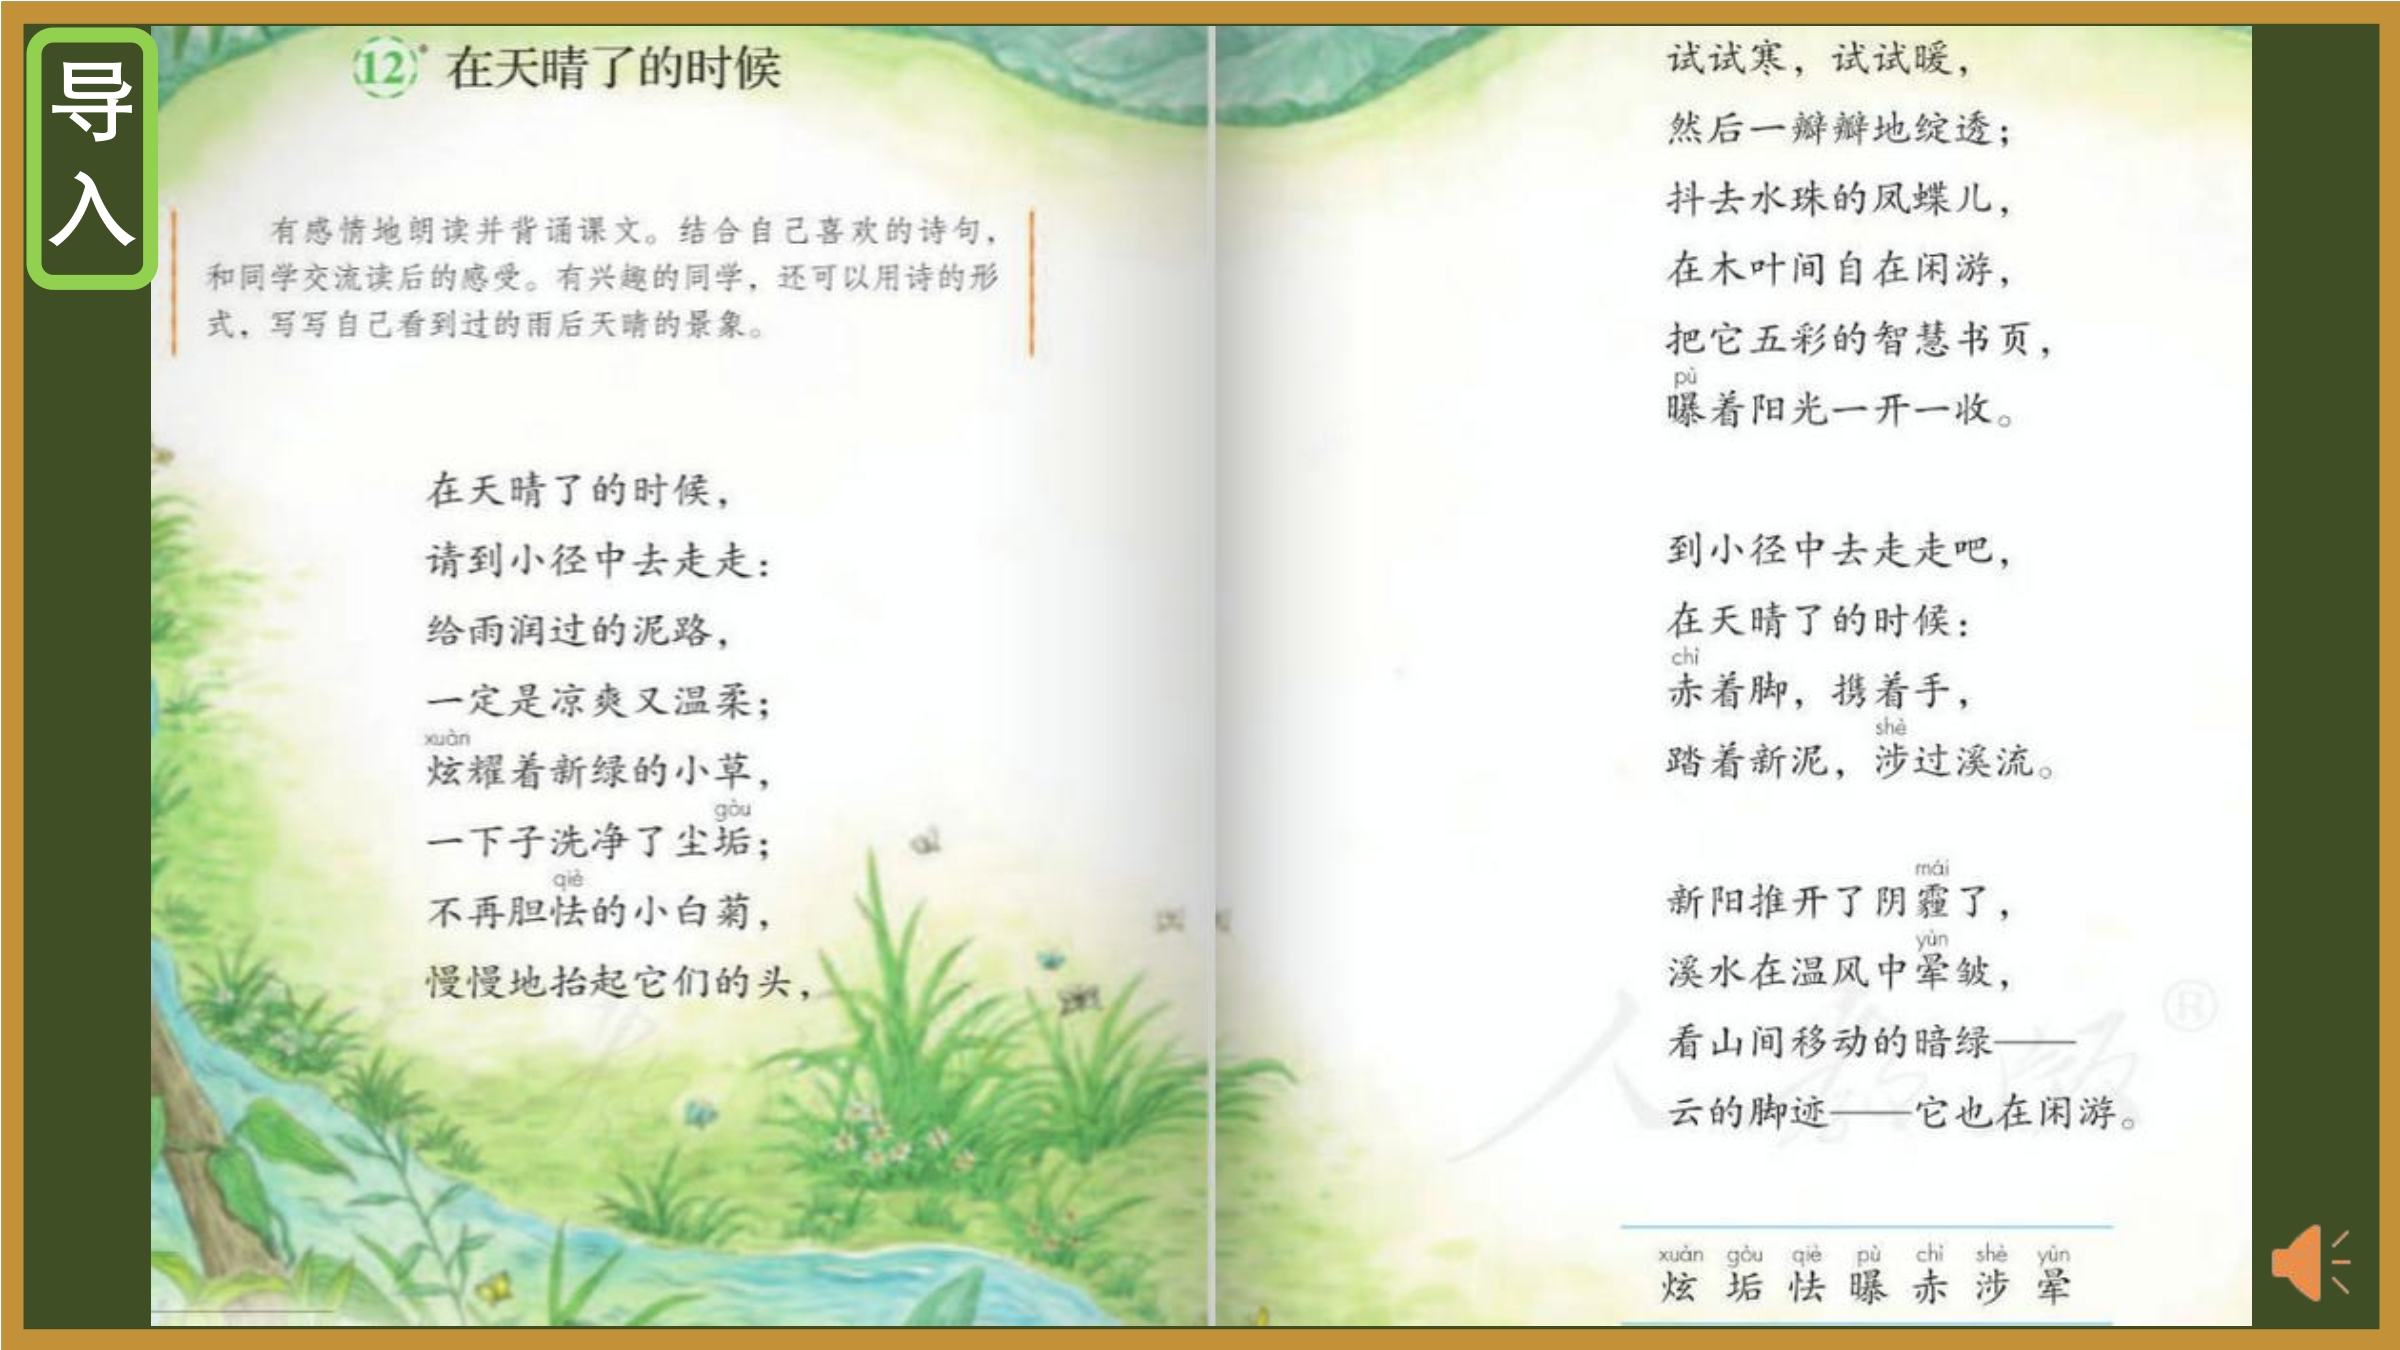 导
入
12* 在天晴了的时候
有感情地朗读并背诵课文。结合自己喜欢的诗句，
和同学交流读后的感受。有兴趣的同学，还可以用诗的形
式，写写自己看到过的雨后天晴的景象。
在天晴了的时候，
请到小径中去走走：
给雨润过的泥路，
一定是凉爽又温柔；
xuàn
炫耀着新绿的小草，
gòu
一下子洗净了尘垢；
qiè
不再胆怯的小白菊，
慢慢地抬起它们的头，
试试寒，试试暖，
然后一瓣瓣地绽透；
抖去水珠的凤蝶儿，
在木叶间自在闲游，
把它五彩的智慧书页，
pù
曝着阳光一开一收。
到小径中去走走吧，
在天晴了的时候：
chì
赤着脚，携着手，
shè
踏着新泥，涉过溪流。
mái
新阳推开了阴霾了，
yùn
溪水在温风中晕皱，
看山间移动的暗绿——
云的脚迹——它也在闲游。
人教版®
xuàn gòu qiè pù chì shè yùn
炫 垢 怯 曝 赤 涉 晕